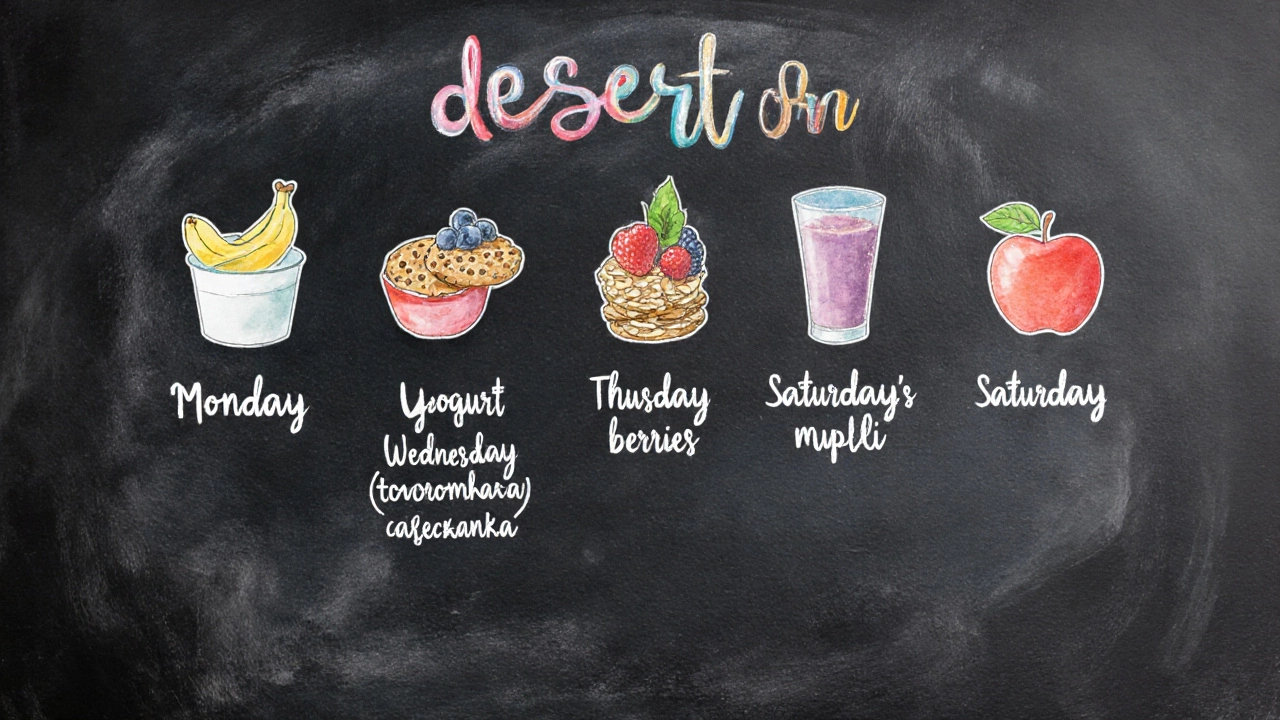 desert on
Monday
Yogurt
Wednesday
(tovoromhava)
cafeckanka
Thusday
berries
Saturday's
muplli
Saturday